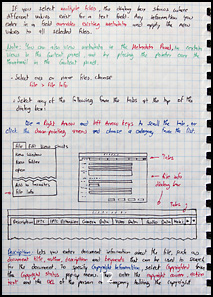 If you select multiple files, the dialog box shows where
different values exist for a text field. Any information you
enter in a field overrides existing metadata and applies the new
values to all selected files.
Note: You can also view metadata in the Metadata Panel, in certain
views in the Content panel, and by placing the pointer over the
thumbnail in the Content panel.
- Select one or more files, choose
File > File info
- Select any of the following from the tabs at the top of the
dialog box:
Use the Right Arrow and Left Arrow keys to scroll the tabs, or
click the down-pointing arrow and choose a category from the list.
File Edit View
New Window
New Folder
Open
Add to Favorites
File info
Tabs
File info
dialog box
Tabs
Description IPTC IPTC Extension Camera Data Video Data Audio Data
Description: Lets you enter document information about the file, such as
document title, author, description and keywords that can be used to search
for the document. To specify Copyright information, select Copyrighted from
the Copyright Status pop-up menu. Then enter the copyright owner, notice
text and the URL of the person or company holding the copyright.